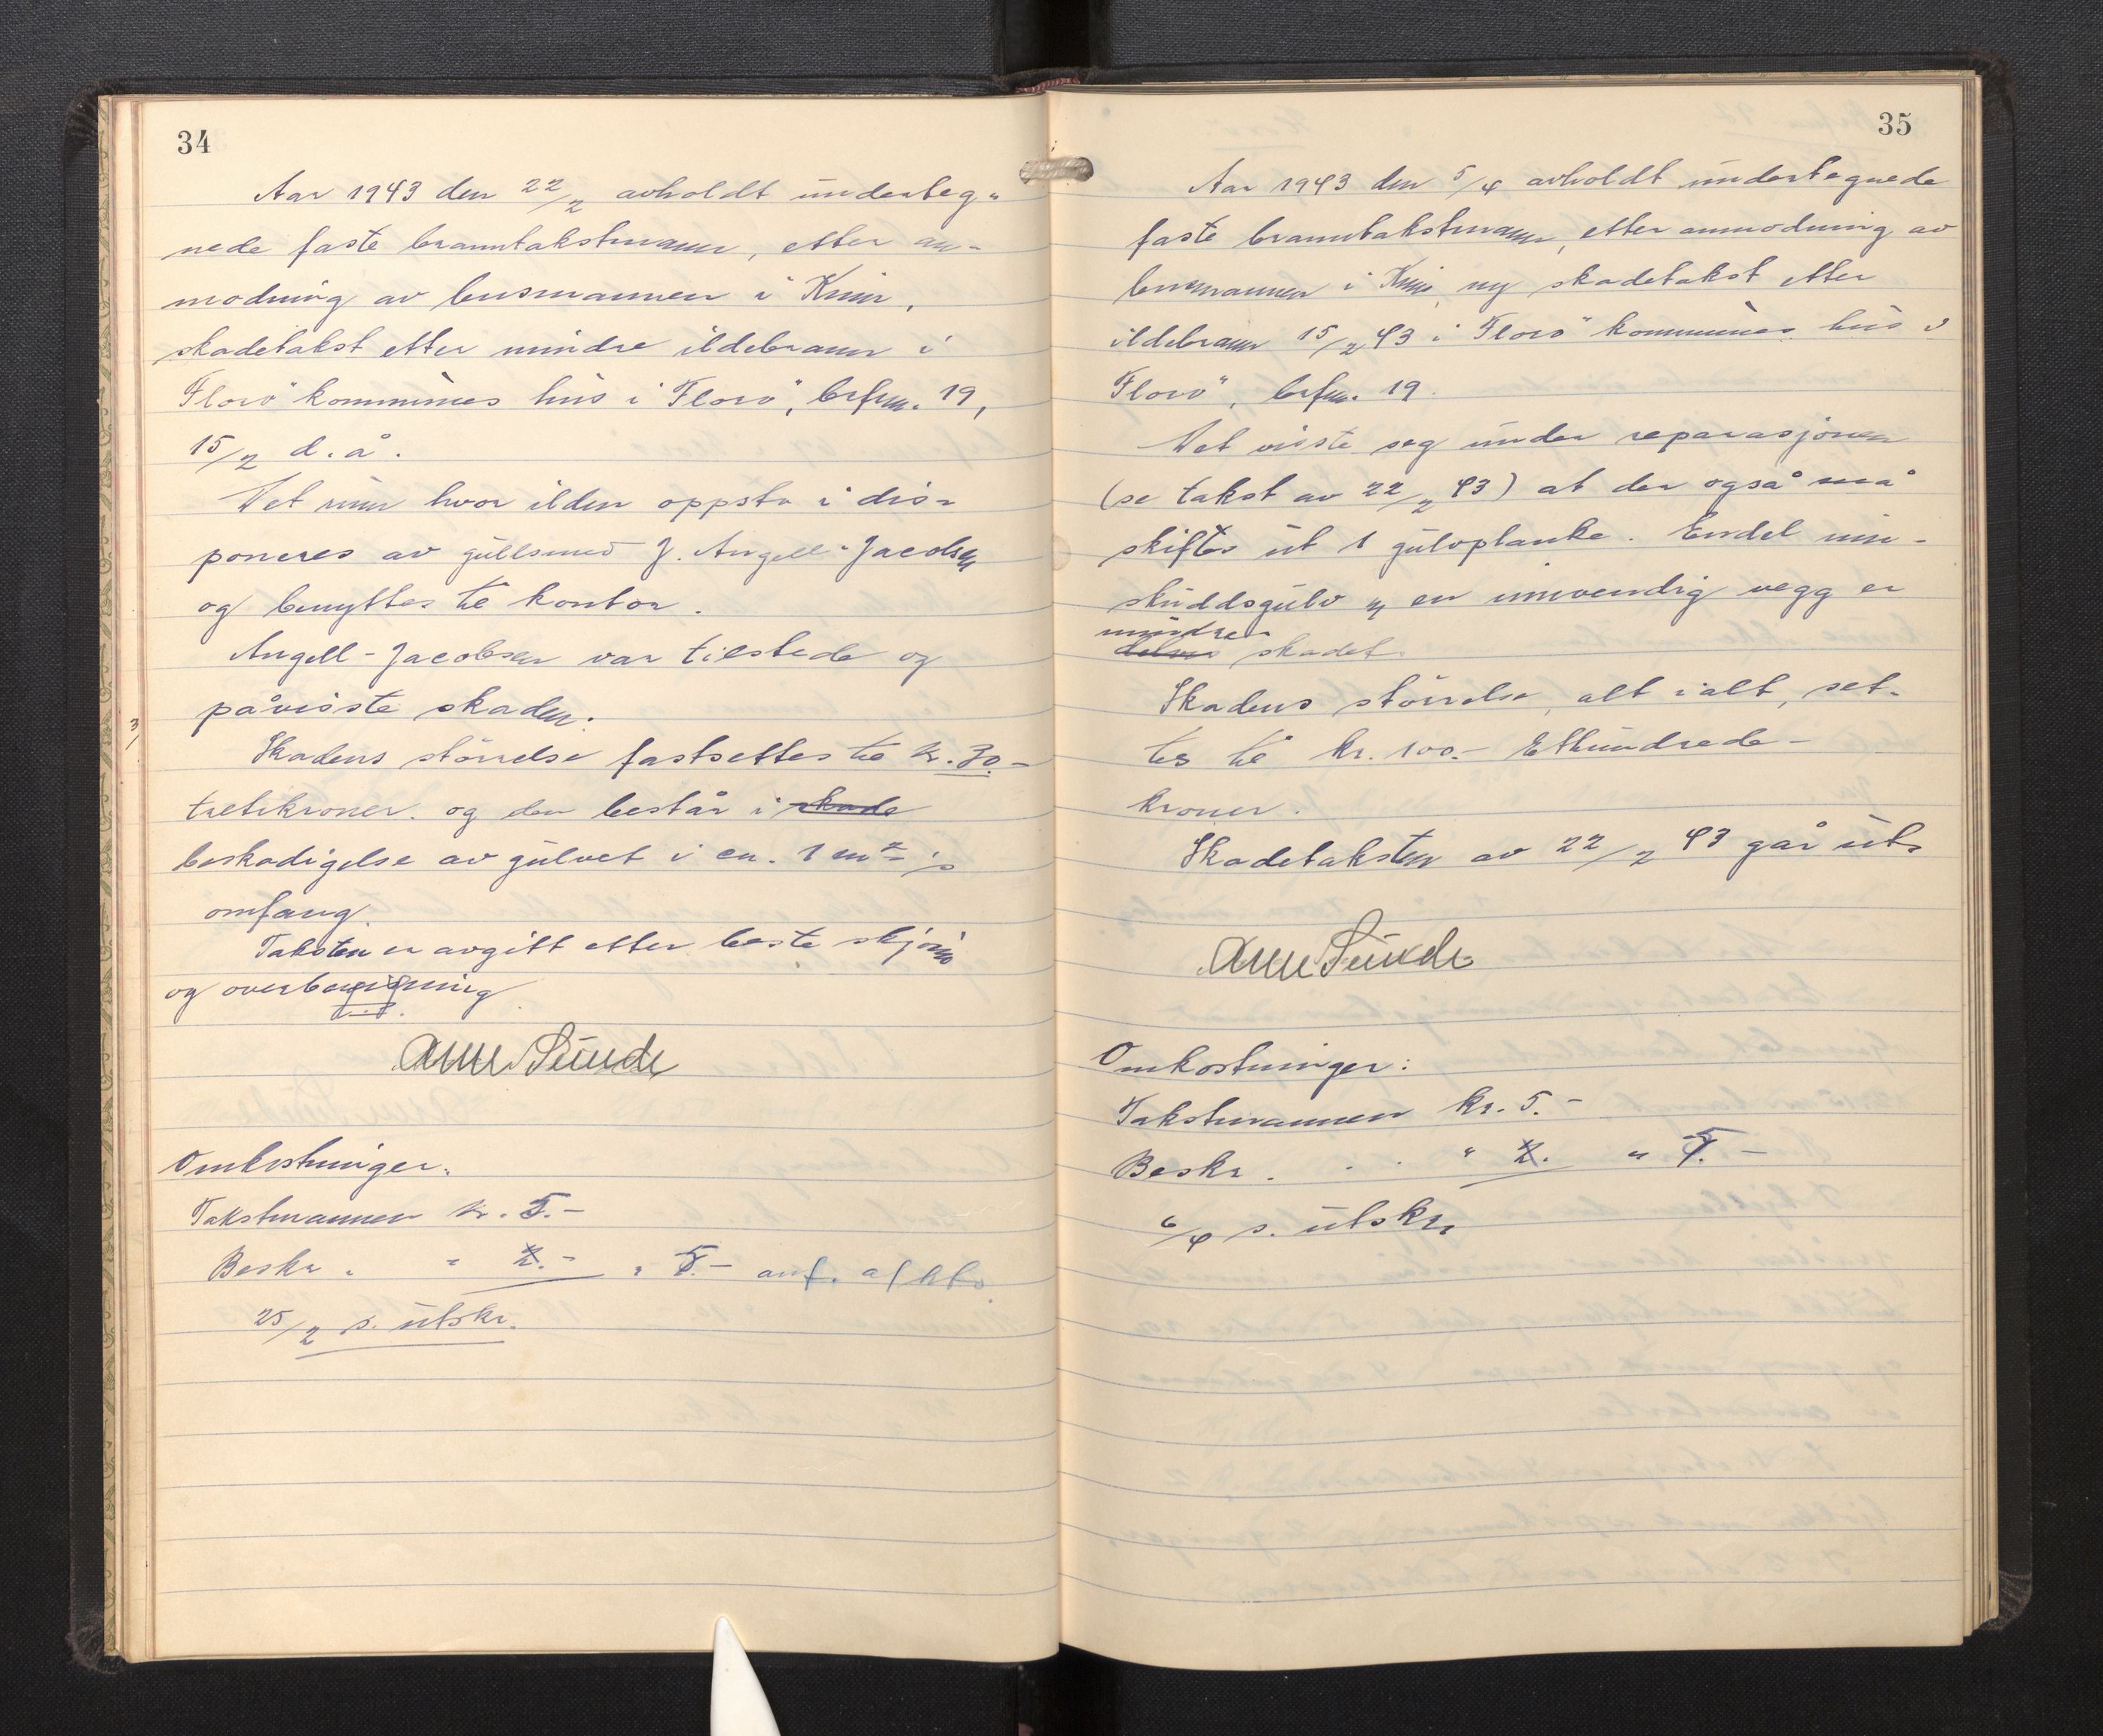 34
Aar 1943 den 22/2 avholdt underteg-
nede faste branntakstmann, etter an-
modning av lensmannen i Kinn,
skadetakst etter mindre ildebrann i
Florø kommunes hus i "Florø", brfnr. 19,
15/2 d. å.
Det rum hvor ilden oppsto i dis-
poneres av gullsmed J. Angell-Jacobsen
og benyttes til kontor.
Angell-Jacobsen var tilstede og
påviste skaden.
Skadens størrelse fastsettes til kr. 30.-
trettikroner. og den består i skade
beskadigelse av gulvet i en. 1 m² 's
omfang.
Taksten er avgitt etter beste skjønn
og overbevisning
Arne Sunde
Omkostninger.
Takstmannen kr. 5.-
Beskr. " 2.- " 5.-
25/2 s. utskr.
35
Aar 1943 den 5/4 avholdt undertegnede
faste branntakstmann, etter anmodning av
lensmannen i Kinn, ny skadetakst etter
ildebrann 15/2 43 i Florø kommunes hus i
"Florø", brfnr. 19.
Det viste seg under reparasjonen
(se takst av 22/2 43) at der også må
skiftes ut 1 gulvplanke. Endel inn-
skuddsgulv og en innvendig vegg er
mindre
delvis skadet.
Skadens størrelse, alt i alt, set-
tes til kr. 100.- Etthundrede-
kroner.
Skadetaksten av 22/2 43 går ut.
Arne Sunde
Omkostninger:
Takstmannen kr. 5.-
Beskr. . . " 2. " 5.-
6/4 s. utskr.